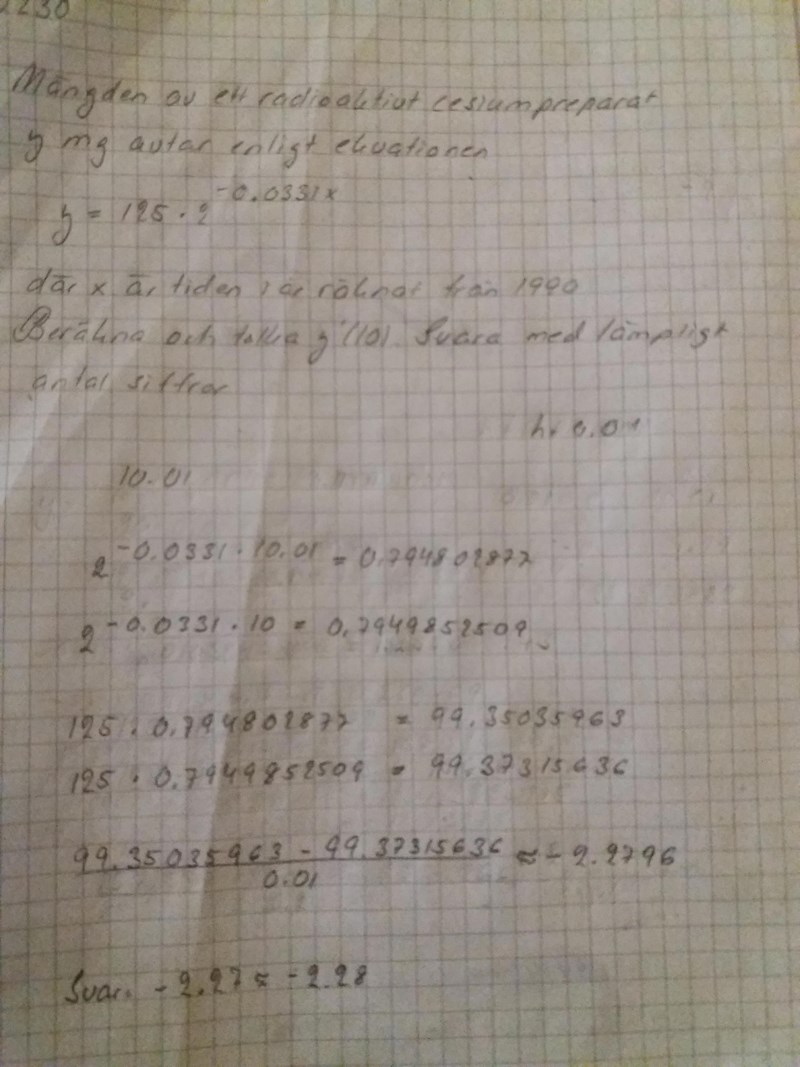 230
Mängden av ett radioaktivt cesiumpreparat
y mg avtar enligt ekvationen
y = 125 · 2^-0.0331x
där x är tiden i år räknat från 1990
Beräkna och tolka y'(10). Svara med lämpligt
antal siffror
h = 0.01
10.01
2^-0.0331 · 10.01 = 0,794802877
2^-0.0331 · 10 = 0,7949852509
125 · 0,794802877 = 99,35035963
125 · 0,7949852509 = 99,37315636
99,35035963 - 99,37315636 ≈ -2.2796
0.01
Svar: -2.27 ≈ -2.28